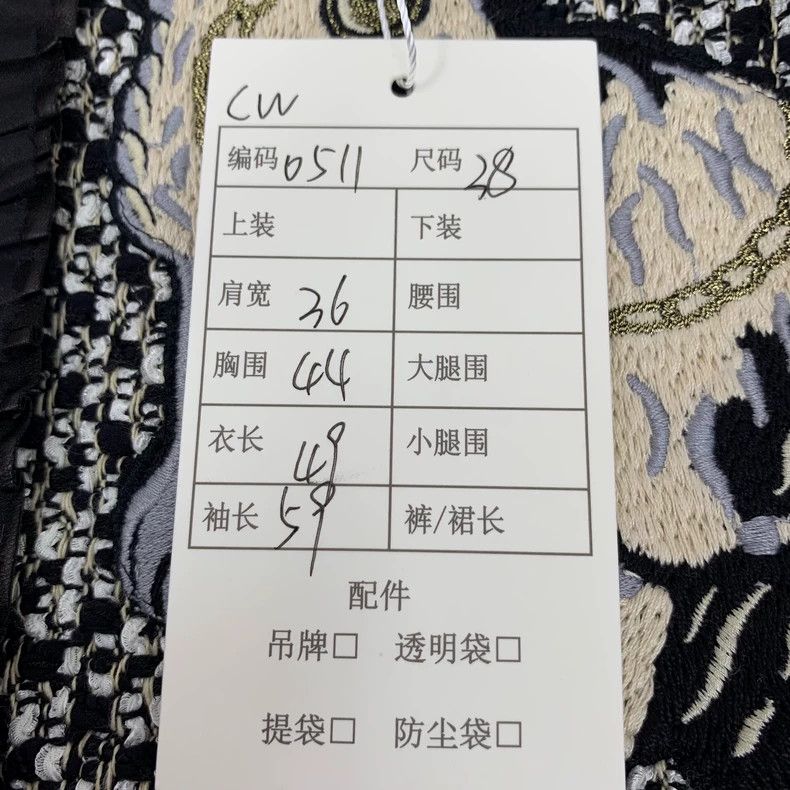 CW
编码 0511 尺码 38
上装 下装
肩宽 36 腰围
胸围 44 大腿围
衣长 49 小腿围
袖长 59 裤/裙长
配件
吊牌□ 透明袋□
提袋□ 防尘袋□